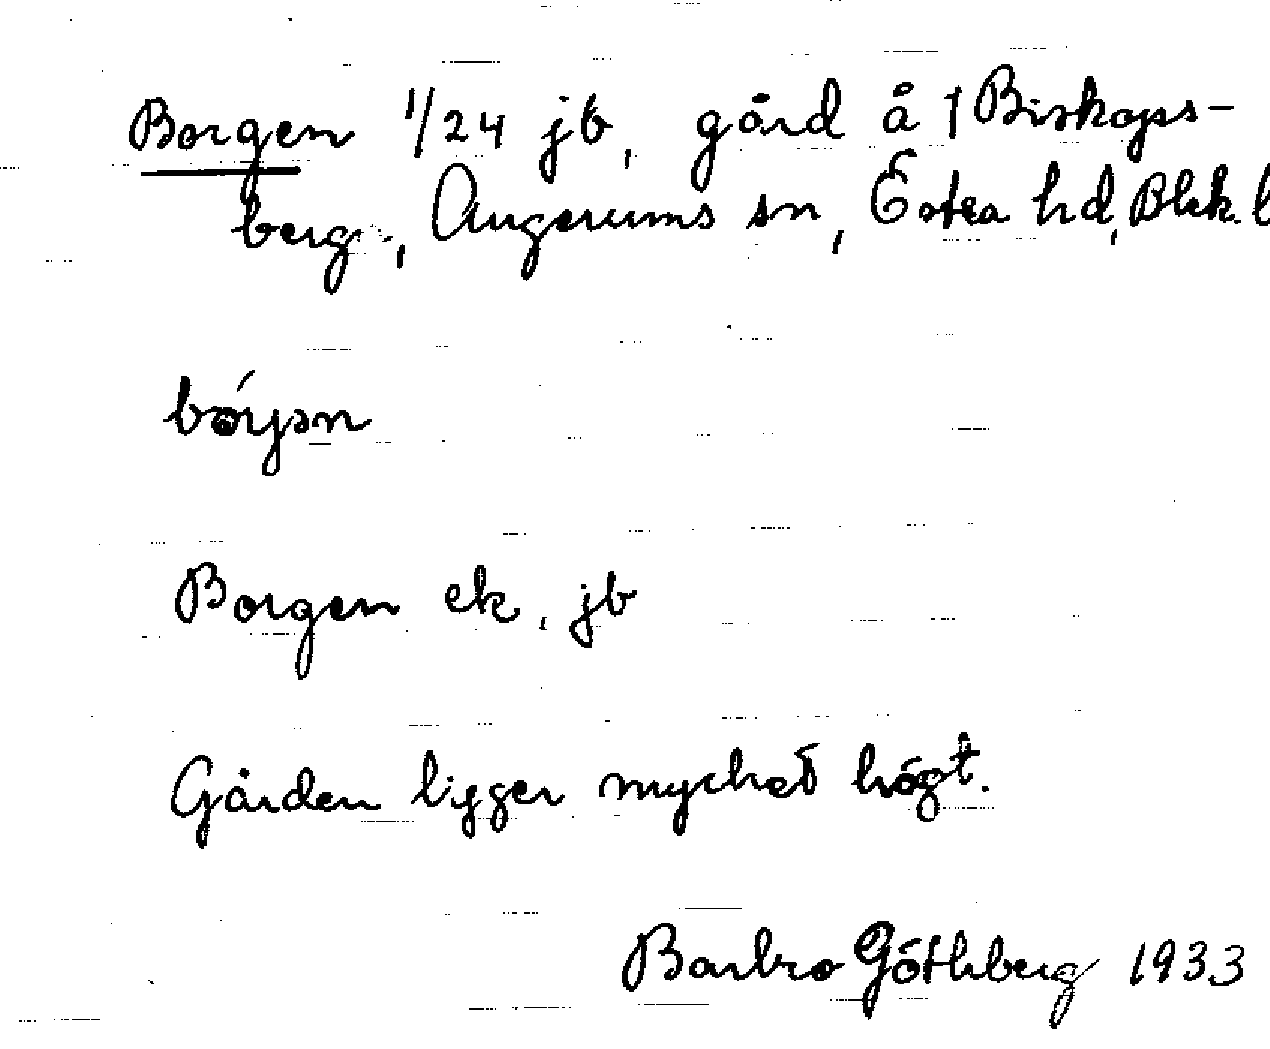 Borgen 1/24 jb, gård å 1 Biskops-
berg, Augerums sn, Östra hd, Blek. l
bórjən
Borgen ek, jb
Gården ligger mycket högt.
Barbro Göthberg 1933